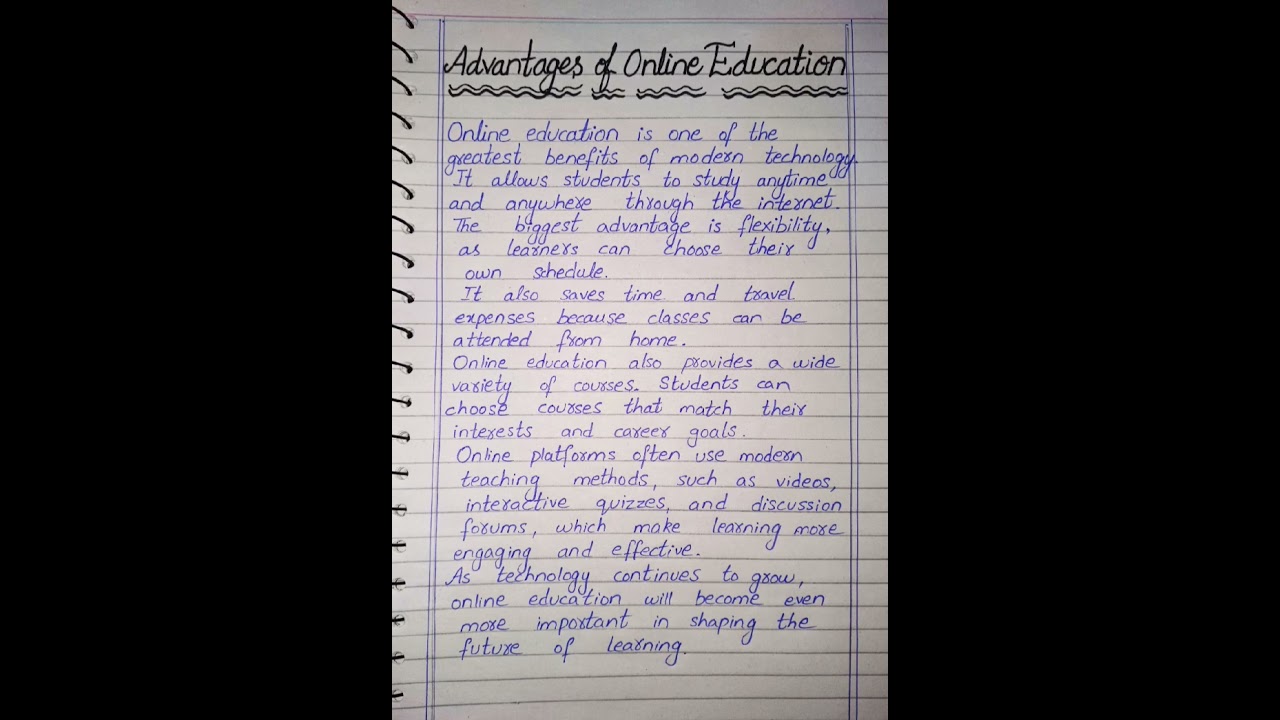 Advantages of Online Education
Online education is one of the
greatest benefits of modern technology.
It allows students to study anytime
and anywhere through the internet.
The biggest advantage is flexibility,
as learners can choose their
own schedule.
It also saves time and travel
expenses because classes can be
attended from home.
Online education also provides a wide
variety of courses. Students can
choose courses that match their
interests and career goals.
Online platforms often use modern
teaching methods, such as videos,
interactive quizzes, and discussion
forums, which make learning more
engaging and effective.
As technology continues to grow,
online education will become even
more important in shaping the
future of learning.